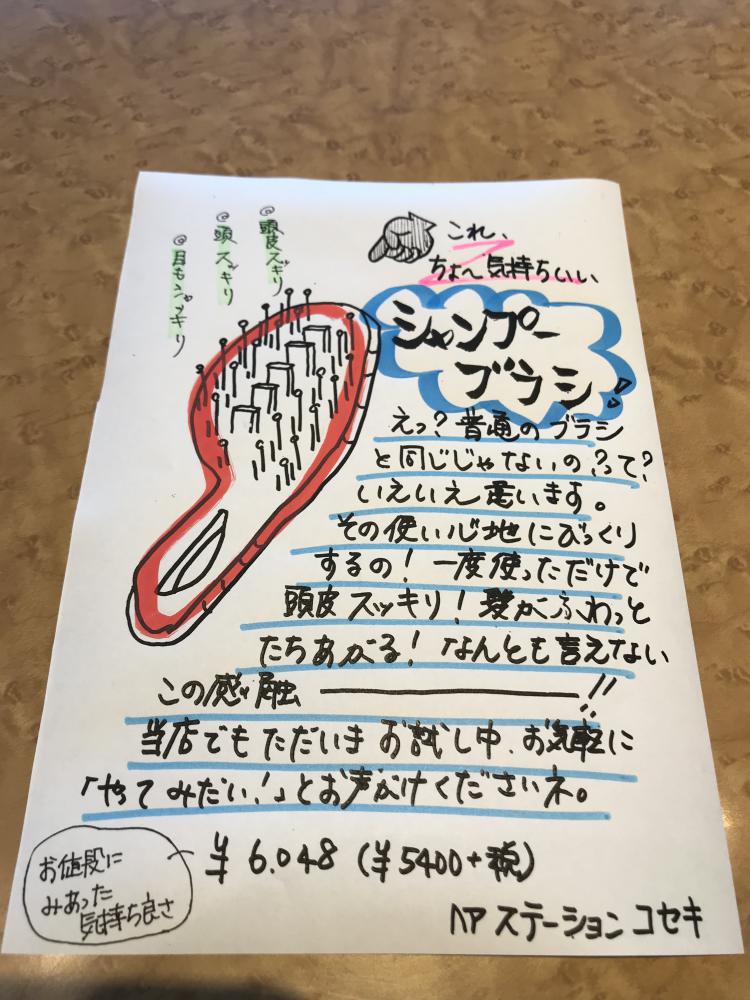 これ、
ちょ〜気持ちいい
シャンプー
ブラシ!
◎頭皮スッキリ
◎頭スッキリ
◎目もパッキリ
えっ?普通のブラシ
と同じじゃないの?って?
いえいえ違います。
その使い心地にびっくり
するの!一度使っただけで
頭皮スッキリ!髪がふわっと
たちあがる!なんとも言えない
この感触━━━!!
当店でもただいまお試し中、お気軽に
「やってみたい!」とお声がけくださいネ。
¥6.048(¥5400+税)
お値段に
みあった
気持ち良さ
ヘアステーションコセキ